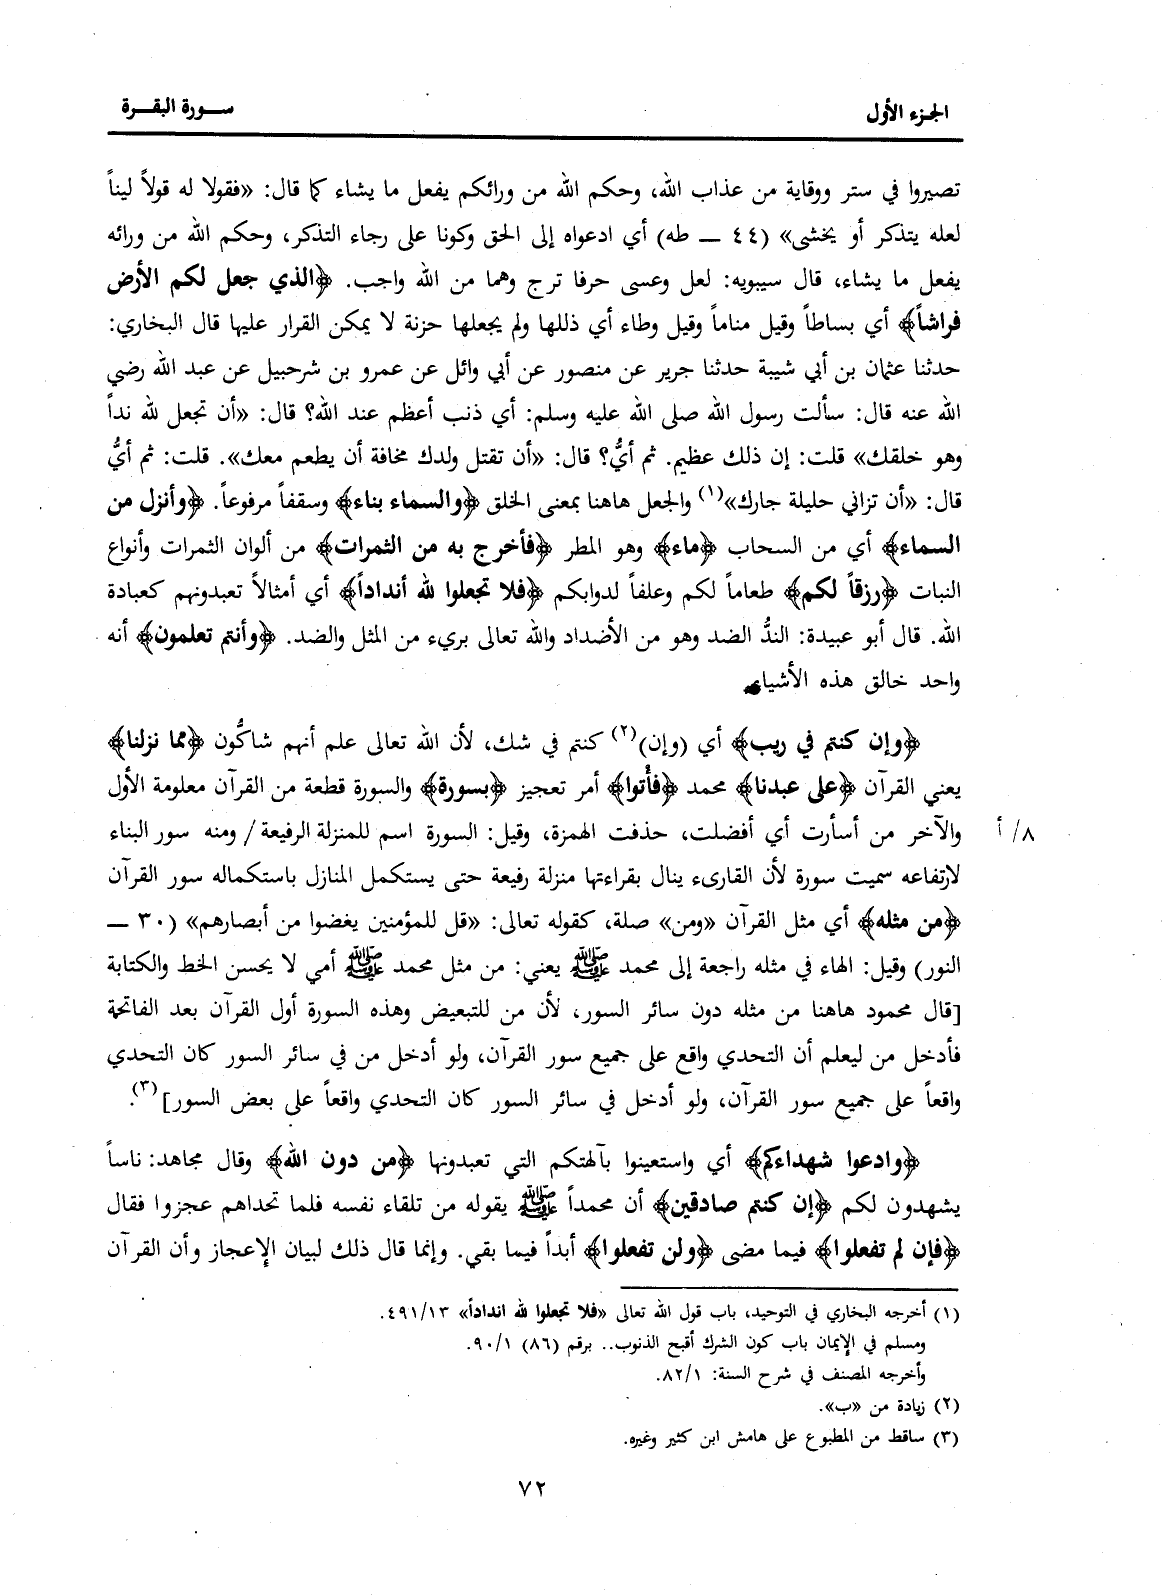 الجزء الأول
سورة البقرة
تصيروا في ستر ووقاية من عذاب الله، وحكم الله من ورائكم يفعل ما يشاء كما قال: «فقولا له قولاً ليناً
لعله يتذكر أو يخشى» (٤٤ ــ طه) أي ادعواه إلى الحق وكونا على رجاء التذكر، وحكم الله من ورائه
يفعل ما يشاء، قال سيبويه: لعل وعسى حرفا ترج وهما من الله واجب. ﴿الذي جعل لكم الأرض
فراشاً﴾ أي بساطاً وقيل مناماً وقيل وطاء أي ذللها ولم يجعلها حزنة لا يمكن القرار عليها قال البخاري:
حدثنا عثمان بن أبي شيبة حدثنا جرير عن منصور عن أبي وائل عن عمرو بن شرحبيل عن عبد الله رضي
الله عنه قال: سألت رسول الله صلى الله عليه وسلم: أي ذنب أعظم عند الله؟ قال: «أن تجعل لله نداً
وهو خلقك» قلت: إن ذلك عظيم. ثم أيُّ؟ قال: «أن تقتل ولدك مخافة أن يطعم معك». قلت: ثم أيُّ
قال: «أن تزاني حليلة جارك»(١) والجعل هاهنا بمعنى الخلق ﴿والسماء بناء﴾ وسقفاً مرفوعاً. ﴿وأنزل من
السماء﴾ أي من السحاب ﴿ماء﴾ وهو المطر ﴿فأخرج به من الثمرات﴾ من ألوان الثمرات وأنواع
النبات ﴿رزقاً لكم﴾ طعاماً لكم وعلفاً لدوابكم ﴿فلا تجعلوا لله أنداداً﴾ أي أمثالاً تعبدونهم كعبادة
الله. قال أبو عبيدة: الندُّ الضد وهو من الأضداد والله تعالى بريء من المثل والضد. ﴿وأنتم تعلمون﴾ أنه
واحد خالق هذه الأشياء
﴿وإن كنتم في ريب﴾ أي (وإن)(٢) كنتم في شك، لأن الله تعالى علم أنهم شاكُّون ﴿مما نزلنا﴾
يعني القرآن ﴿على عبدنا﴾ محمد ﴿فأْتوا﴾ أمر تعجيز ﴿بسورة﴾ والسورة قطعة من القرآن معلومة الأول
والآخر من أسأرت أي أفضلت، حذفت الهمزة، وقيل: السورة اسم للمنزلة الرفيعة / ومنه سور البناء
٨/ أ
لارتفاعه سميت سورة لأن القارىء ينال بقراءتها منزلة رفيعة حتى يستكمل المنازل باستكماله سور القرآن
﴿من مثله﴾ أي مثل القرآن «ومن» صلة، كقوله تعالى: «قل للمؤمنين يغضوا من أبصارهم» (٣٠ ــ
النور) وقيل: الهاء في مثله راجعة إلى محمد ﷺ يعني: من مثل محمد ﷺ أمي لا يحسن الخط والكتابة
[قال محمود هاهنا من مثله دون سائر السور، لأن من للتبعيض وهذه السورة أول القرآن بعد الفاتحة
فأدخل من ليعلم أن التحدي واقع على جميع سور القرآن، ولو أدخل من في سائر السور كان التحدي
واقعاً على جميع سور القرآن، ولو أدخل في سائر السور كان التحدي واقعاً على بعض السور](٣).
﴿وادعوا شهداءكم﴾ أي واستعينوا بآلهتكم التي تعبدونها ﴿من دون الله﴾ وقال مجاهد: ناساً
يشهدون لكم ﴿إن كنتم صادقين﴾ أن محمداً ﷺ يقوله من تلقاء نفسه فلما تحداهم عجزوا فقال
﴿فإن لم تفعلوا﴾ فيما مضى ﴿ولن تفعلوا﴾ أبداً فيما بقي. وإنما قال ذلك لبيان الإعجاز وأن القرآن
(١) أخرجه البخاري في التوحيد، باب قول الله تعالى «فلا تجعلوا لله انداداً» ٤٩١/١٣.
ومسلم في الإيمان باب كون الشرك أقبح الذنوب.. برقم (٨٦) ٩٠/١.
وأخرجه المصنف في شرح السنة: ٨٢/١.
(٢) زيادة من «ب».
(٣) ساقط من المطبوع على هامش ابن كثير وغيره.
٧٢